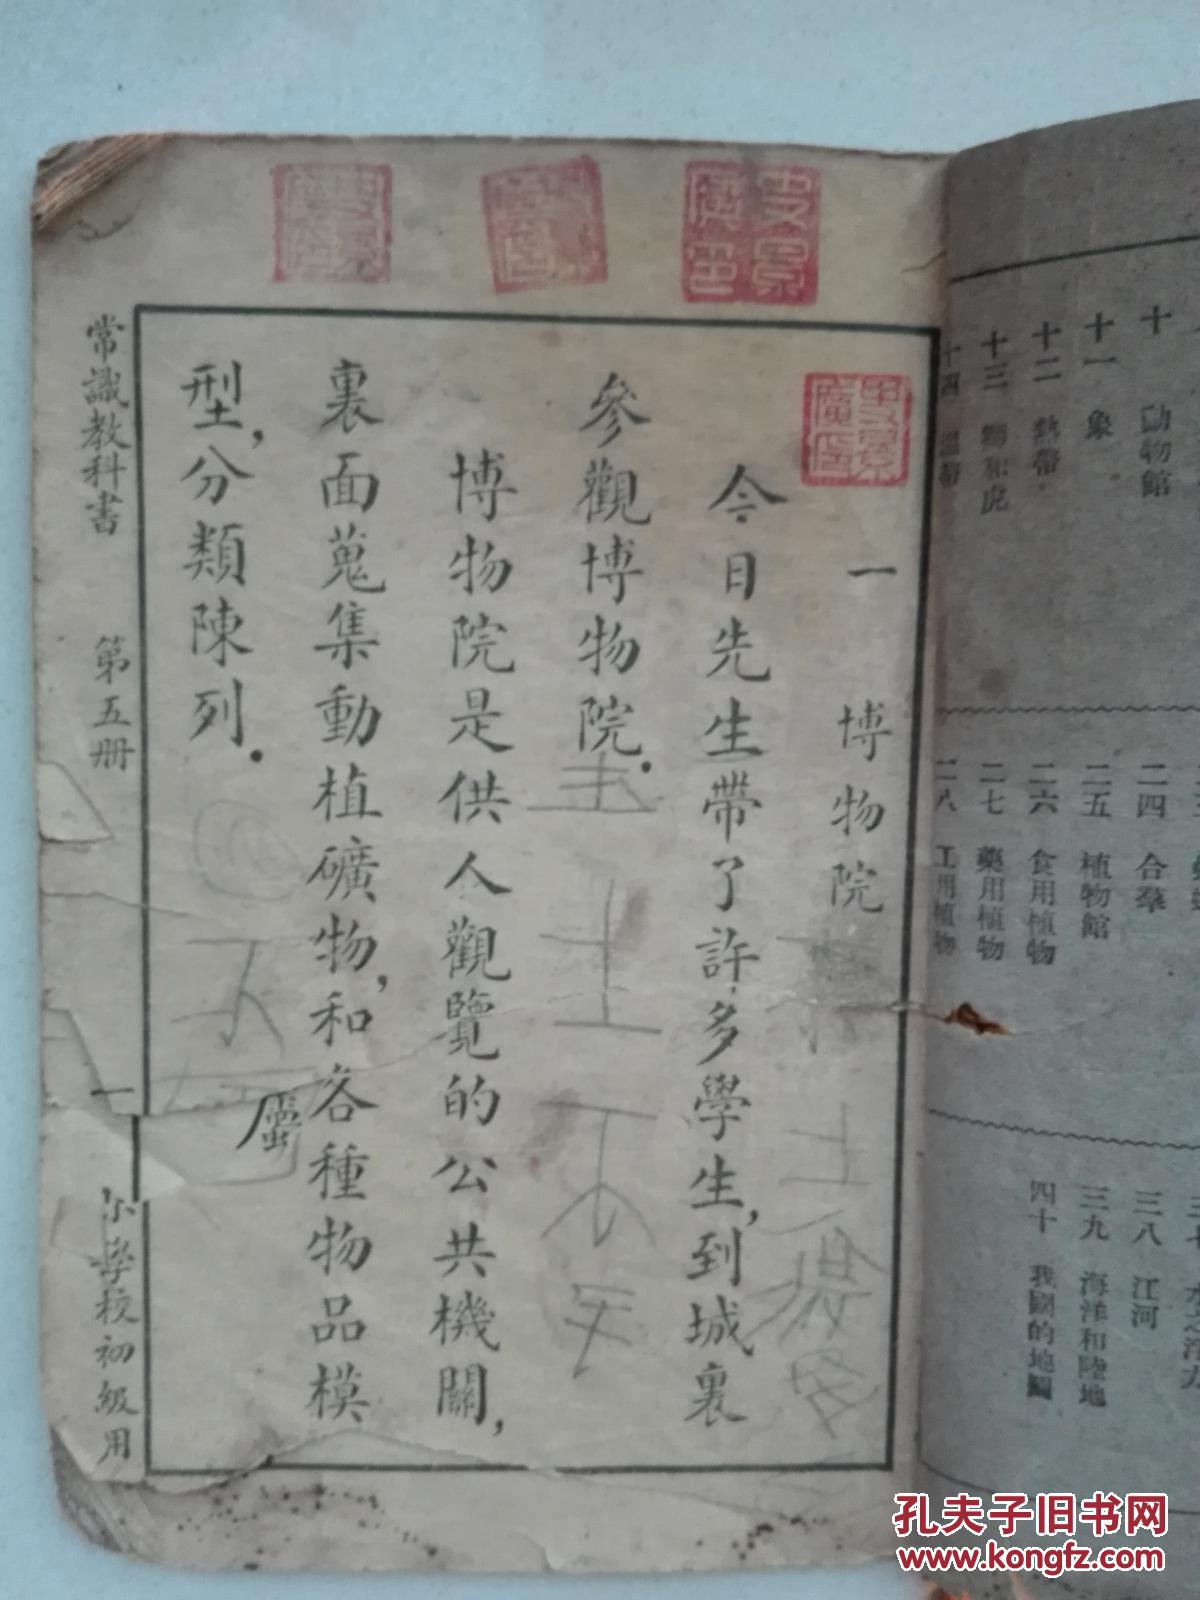 十 動物館
十一 象
十二 熱帶
十三 獅和虎
十四 溫帶
二四 合羣
二五 植物館
二六 食用植物
二七 藥用植物
二八 工用植物
三八 江河
三九 海洋和陸地
四十 我國的地圖
一 博物院
今日先生帶了許多學生,到城裏
參觀博物院.
博物院是供人觀覽的公共機關,
裏面蒐集動植礦物,和各種物品模
型,分類陳列.
常識教科書 第五册 一 小學校初級用
孔夫子旧书网
www.kongfz.com